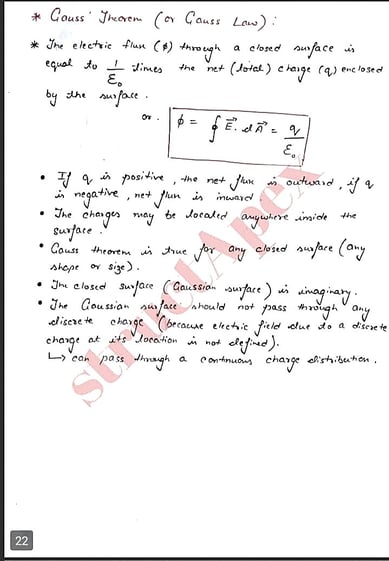 * Gauss' Theorem (or Gauss Law) :
* The electric flux (ϕ) through a closed surface is
equal to 1/ε₀ times the net (total) charge (q) enclosed
by the surface.
or. ϕ = ∮ E⃗. dA⃗ = q/ε₀
• If q is positive, the net flux is outward, if q
is negative, net flux is inward.
• The charges may be located anywhere inside the
surface.
• Gauss theorem is true for any closed surface (any
shape or size).
• The closed surface (Gaussian surface) is imaginary.
• The Gaussian surface should not pass through any
discrete charge (because electric field due to a discrete
charge at its location is not defined).
↳ can pass through a continuous charge distribution.
structApex
22